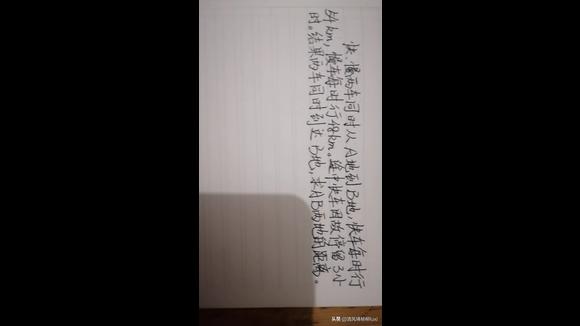 快、慢两车同时从A地到B地,快车每时行
54km,慢车每时行48km。途中快车因故停留3小
时。结果两车同时到达B地,求AB两地的距离。